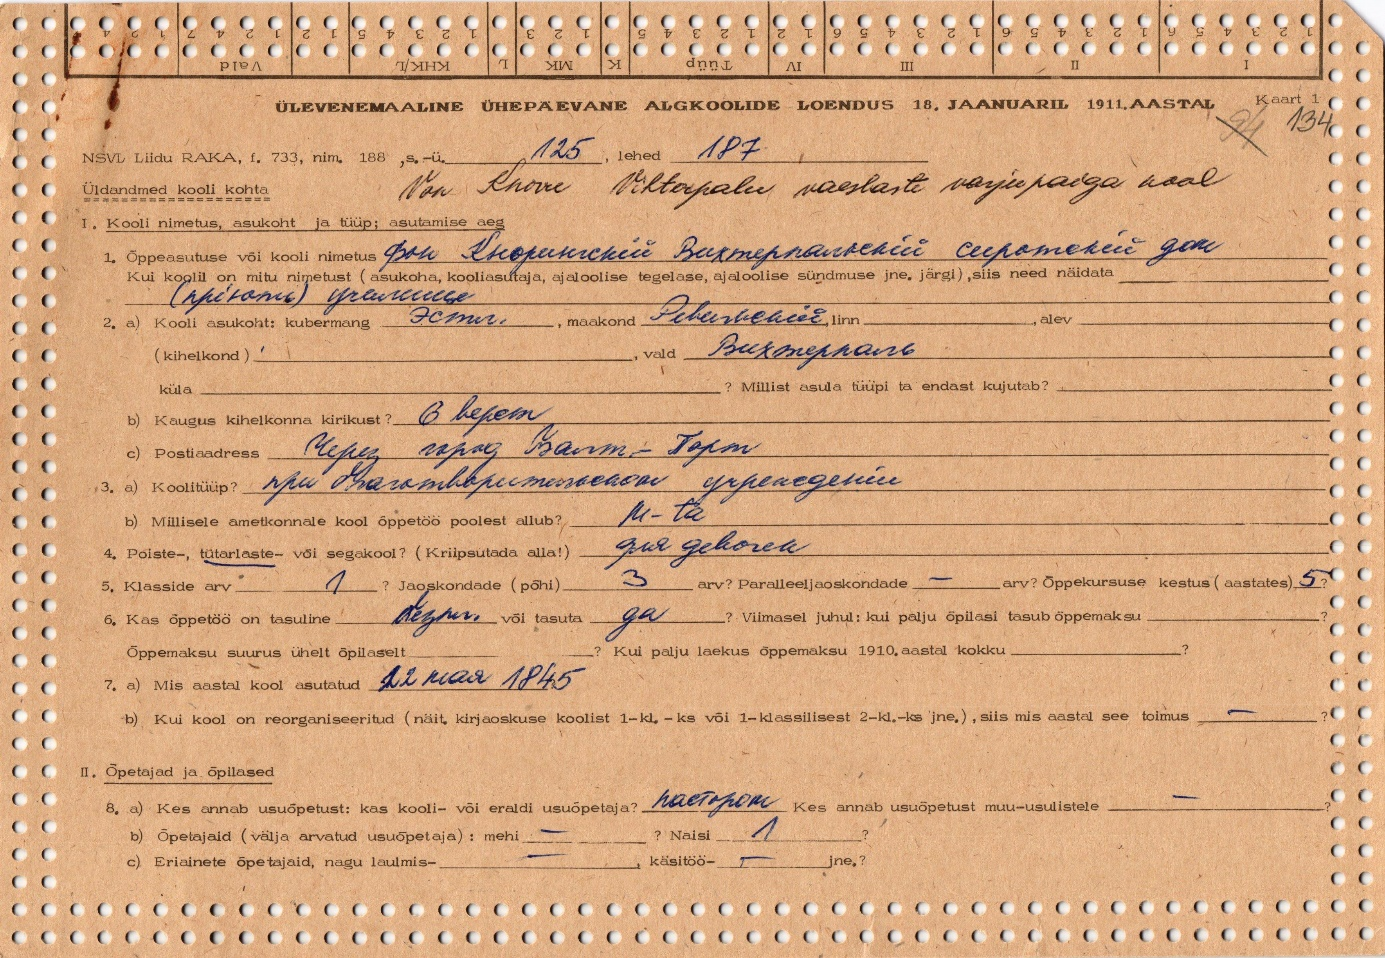 1 2 3 4 5 6 1 2 3 4 5 6 1 2 3 4 5 6 1 2 1 2 3 4 5 1 2 3 1 2 3 4 5 1 2 1 2 4 7 1 2 4
I II III IV Tüüp K MK L KHK/L Vald
ÜLEVENEMAALINE ÜHEPÄEVANE ALGKOOLIDE LOENDUS 18. JAANUARIL 1911. AASTAL Kaart 1
94 134
NSVL Liidu RAKA, f. 733, nim. 188 ,s.-ü. 125 , lehed 187
Üldandmed kooli kohta Von Knorr Vihterpalu vaeslaste varjupaiga kool
I. Kooli nimetus, asukoht ja tüüp; asutamise aeg
1. Õppeasutuse või kooli nimetus фон Кнорингскій Вихтерпальскій сиротскій дом
Kui koolil on mitu nimetust (asukoha, kooliasutaja, ajaloolise tegelase, ajaloolise sündmuse jne. järgi), siis need näidata
(пріютъ) училище
2. a) Kooli asukoht: kubermang Эстл. , maakond Ревельскій, linn , alev
(kihelkond) , vald Вихтерпаль
küla ? Millist asula tüüpi ta endast kujutab?
b) Kaugus kihelkonna kirikust? 6 верст
c) Postiaadress Через город Балт.- Порт
3. a) Koolitüüp? при благотворительном учреждении
b) Millisele ametkonnale kool õppetöö poolest allub? М-ва
4. Poiste-, tütarlaste- või segakool? (Kriipsutada alla!) для девочек
5. Klasside arv 1 ? Jaoskondade (põhi) 3 arv? Paralleeljaoskondade — arv? Õppekursuse kestus (aastates) 5 ?
6. Kas õppetöö on tasuline безпл. või tasuta да ? Viimasel juhul: kui palju õpilasi tasub õppemaksu ?
Õppemaksu suurus ühelt õpilaselt ? Kui palju laekus õppemaksu 1910. aastal kokku ?
7. a) Mis aastal kool asutatud 22 мая 1845
b) Kui kool on reorganiseeritud (näit. kirjaoskuse koolist 1-kl. -ks või 1-klassilisest 2-kl.-ks jne.), siis mis aastal see toimus — ?
II. Õpetajad ja õpilased
8. a) Kes annab usuõpetust: kas kooli- või eraldi usuõpetaja? пастором Kes annab usuõpetust muu-usulistele — ?
b) Õpetajaid (välja arvatud usuõpetaja) : mehi — ? Naisi 1 ?
c) Eriainete õpetajaid, nagu laulmis- — , käsitöö- — jne.?